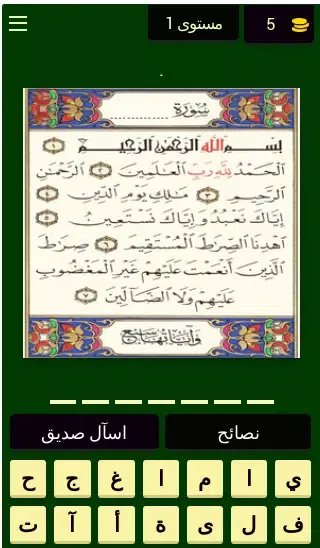 مستوى 1
5
سُورَةُ ..............
بِسْمِ اللَّهِ الرَّحْمَٰنِ الرَّحِيمِ ١
الْحَمْدُ لِلَّهِ رَبِّ الْعَالَمِينَ ٢ الرَّحْمَٰنِ
الرَّحِيمِ ٣ مَالِكِ يَوْمِ الدِّينِ ٤
إِيَّاكَ نَعْبُدُ وَإِيَّاكَ نَسْتَعِينُ ٥
اهْدِنَا الصِّرَاطَ الْمُسْتَقِيمَ ٦ صِرَاطَ
الَّذِينَ أَنْعَمْتَ عَلَيْهِمْ غَيْرِ الْمَغْضُوبِ
عَلَيْهِمْ وَلَا الضَّالِّينَ ٧
وَآيَاتُهَا سَبْعٌ
نصائح
اسآل صديق
ي ا م ا غ ج ح
ف ل ى ة أ آ ت